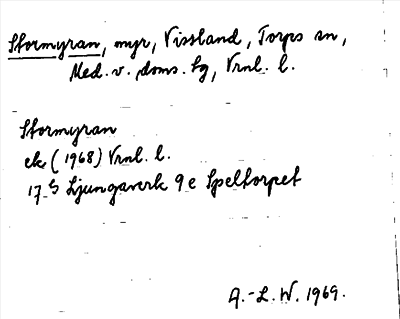 Stormyran, myr, Vissland, Torps sn,
Med. v. doms. tg, Vrnl. l.
Stormyran
ek (1968) Vrnl. l.
17 G Ljungaverk 9 e Speltorpet
A.-L.W. 1969.